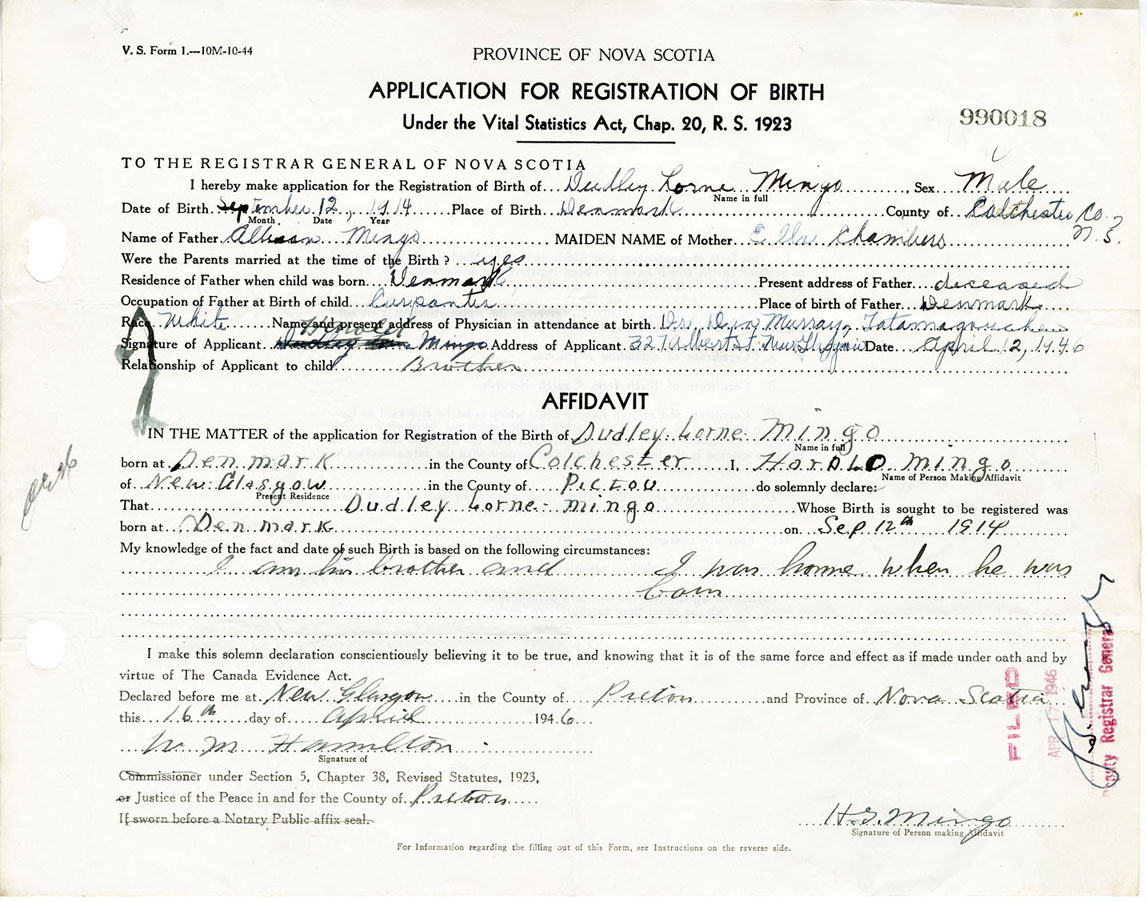 V. S. Form 1.—10M-10-44
PROVINCE OF NOVA SCOTIA
APPLICATION FOR REGISTRATION OF BIRTH
990018
Under the Vital Statistics Act, Chap. 20, R. S. 1923
TO THE REGISTRAR GENERAL OF NOVA SCOTIA
I hereby make application for the Registration of Birth of Dudley Lorne Mingo, Sex Male
Name in full
Date of Birth September 12, 1914 Place of Birth Denmark County of Colchester Co. N.S.
Month Date Year
Name of Father Allison Mingo MAIDEN NAME of Mother Ella Chambers
Were the Parents married at the time of the Birth? yes
Residence of Father when child was born Denmark Present address of Father deceased
Occupation of Father at Birth of child Carpanter Place of birth of Father Denmark
Race White Name and present address of Physician in attendance at birth Dr. Dan Murray, Tatamagouche
Signature of Applicant Harold Mingo Address of Applicant 327 Albert St. New Glasgow Date April 12, 1946
Relationship of Applicant to child Brother
AFFIDAVIT
IN THE MATTER of the application for Registration of the Birth of Dudley Lorne Mingo
Name in full
born at Denmark in the County of Colchester I, Harold Mingo
Name of Person Making Affidavit
of New Glasgow in the County of Pictou do solemnly declare:
Present Residence
That Dudley Lorne Mingo Whose Birth is sought to be registered was
born at Denmark on Sep 12th 1914
My knowledge of the fact and date of such Birth is based on the following circumstances:
I am his brother and I was home when he was
born
I make this solemn declaration conscientiously believing it to be true, and knowing that it is of the same force and effect as if made under oath and by
virtue of The Canada Evidence Act.
Declared before me at New Glasgow in the County of Pictou and Province of Nova Scotia
this 16th day of April 1946
W M Hamilton
Signature of
Commissioner under Section 5, Chapter 38, Revised Statutes, 1923,
or Justice of the Peace in and for the County of Pictou
If sworn before a Notary Public affix seal.
H. G. Mingo
Signature of Person making Affidavit
For Information regarding the filling out of this Form, see Instructions on the reverse side.
FILED
APR 17 1946
Deputy Registrar General